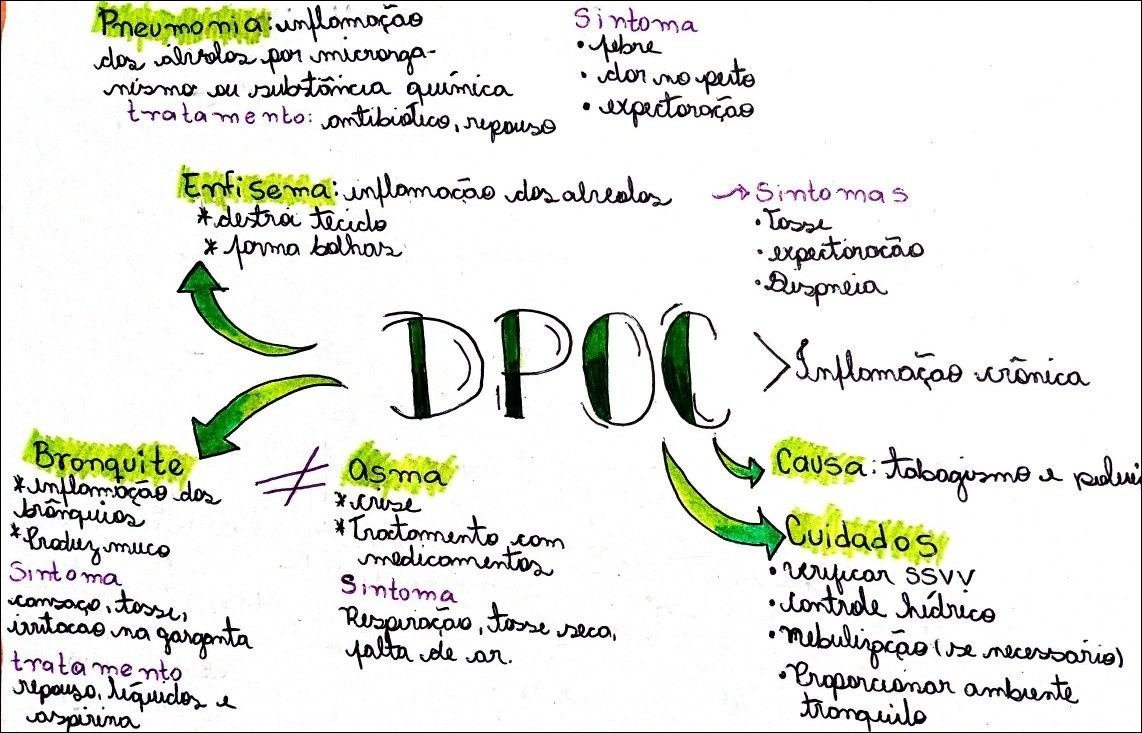 Pneumonia: inflamação
dos álvolos por microrga-
nismo ou substância química
tratamento: antibiótico, repouso
Sintoma
• febre
• dor no peito
• expectoração
Enfisema: inflamação dos alveolos
* destroi tecido
* forma bolhas
→ Sintomas
• Tosse
• expectoração
• Dispneia
DPOC
> Inflamação crônica
Bronquite
* inflamação dos
brônquios
* Produz muco
Sintoma
cansaço, tosse,
irritacao na garganta
tratamento
repouso, líquidos e
aspirina
≠
Asma
* crise
* Tractamento com
medicamentos
Sintoma
Respiração, tosse seca,
falta de ar.
Causa: tabagismo e
Cuidados
• verificar SSVV
• controle hídrico
• nebulização (se necessário)
• Proporcionar ambiente
tranquilo